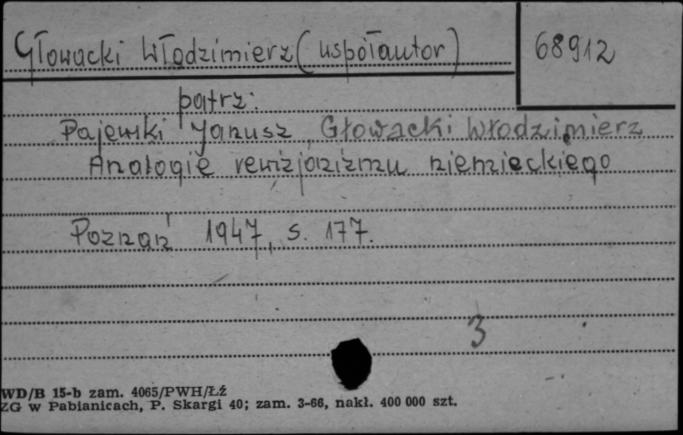 Głowacki Włodzimierz (współautor)
68912
patrz:
Pajewski Janusz, Głowacki Włodzimierz
Analogie rewizjonizmu niemieckiego
Poznań 1947, s. 177.
3
WD/B 15-b zam. 4065/PWH/Łź
ZG w Pabianicach, P. Skargi 40; zam. 3-66, nakł. 400 000 szt.